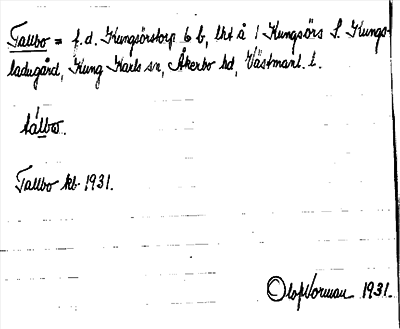 Tallbo = f.d. Kungsörstorp 6 b, lht å 1 Kungsörs S. Kungs-
ladugård, Kung Karls sn, Åkerbo hd, Västmanl. l.
tálbω.
Tallbo kb. 1931.
Olof Norman 1931.